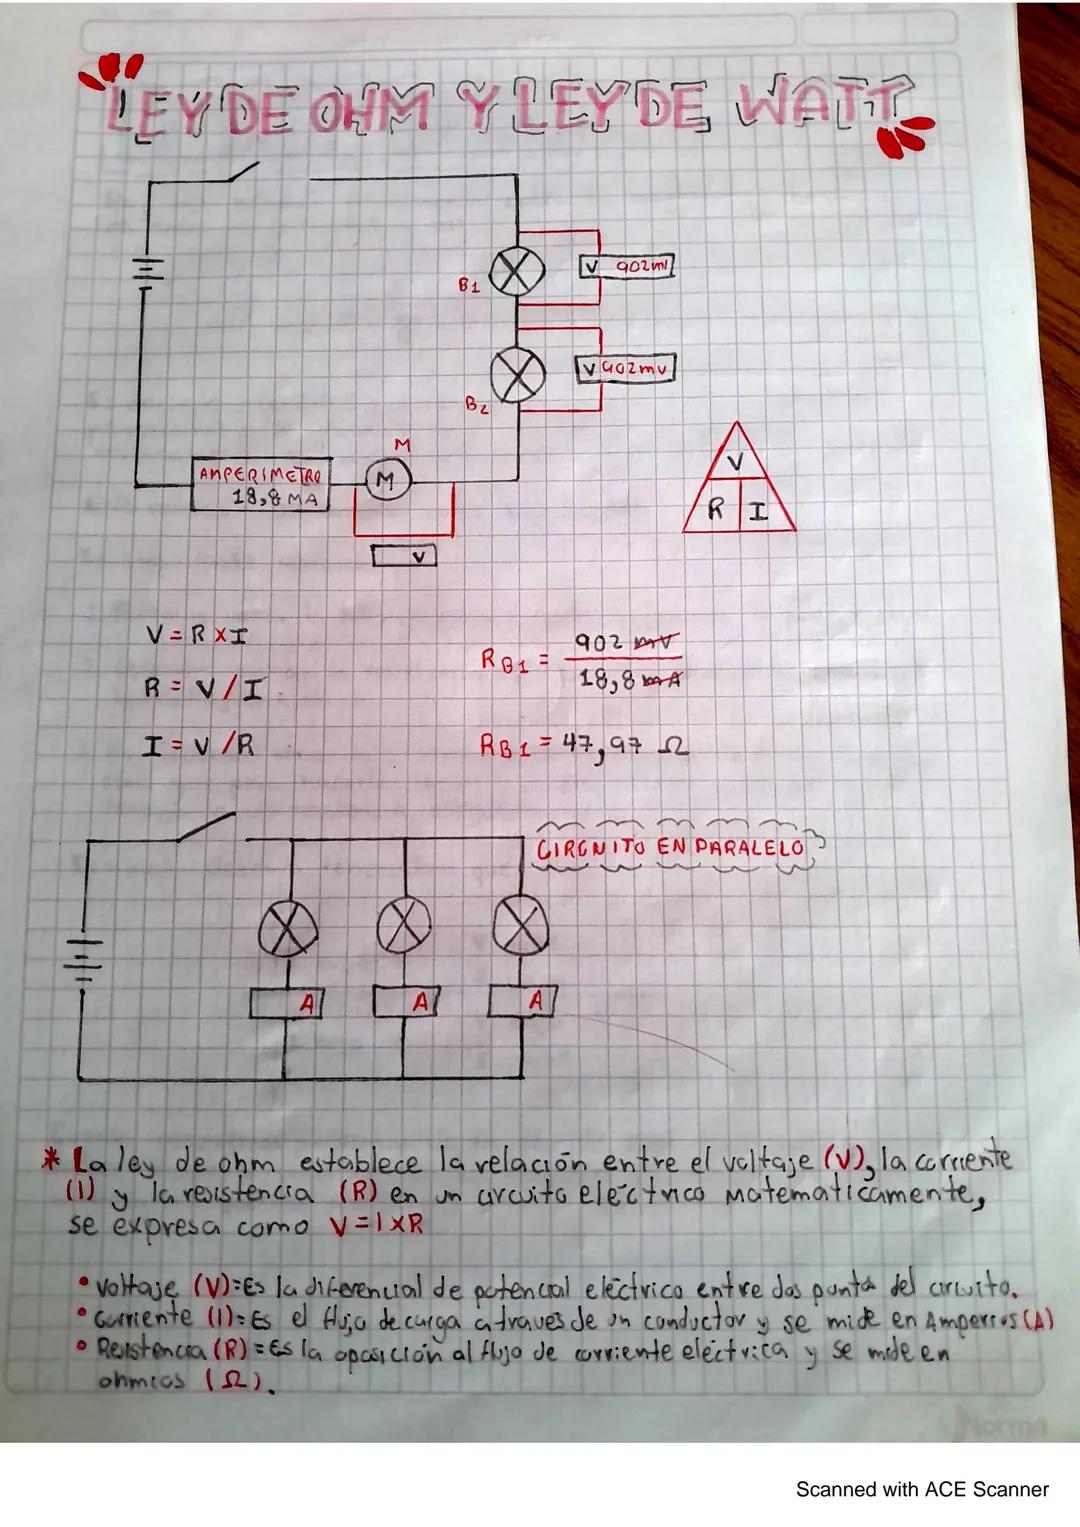 LEY DE OHM Y LEY DE WATT
B1
V 902mV
B2
V 902mv
M
AMPERIMETRO
18,8 MA
M
V
V
R I
V = R X I
R = V / I
I = V / R
RB1 = 902 mV
18,8 mA
RB1 = 47,97 Ω
CIRCUITO EN PARALELO
A
A
A
* La ley de ohm establece la relación entre el voltaje (V), la corriente
(I) y la resistencia (R) en un circuito eléctrico matematicamente,
se expresa como V = I X R
• Voltaje (V)= Es la diferencial de potencial eléctrico entre dos punto del circuito.
• Corriente (I)= Es el flujo de carga atraves de un conductor y se mide en Amperios (A)
• Resistencia (R) = Es la oposición al flujo de corriente eléctrica y se mide en
ohmios (Ω).
Norma
Scanned with ACE Scanner